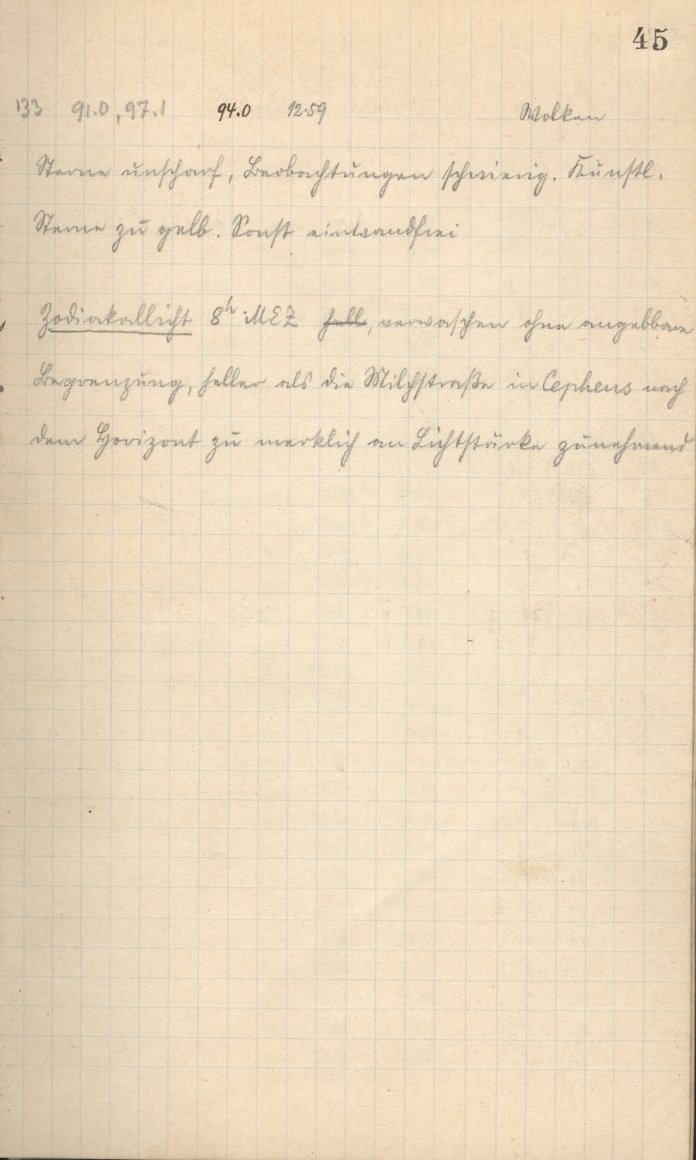 45
133 91.0, 97.1 94.0 12.59 Wolken
Sterne unscharf, Beobachtungen schwierig. Künstl.
Sterne zu gelb. Sonst einwandfrei
Zodiakallicht 8h MEZ hell, verwaschen ohne angebbare
Begrenzung, heller als die Milchstraße in Cepheus nach
dem Horizont zu merklich an Lichtstärke zunehmend